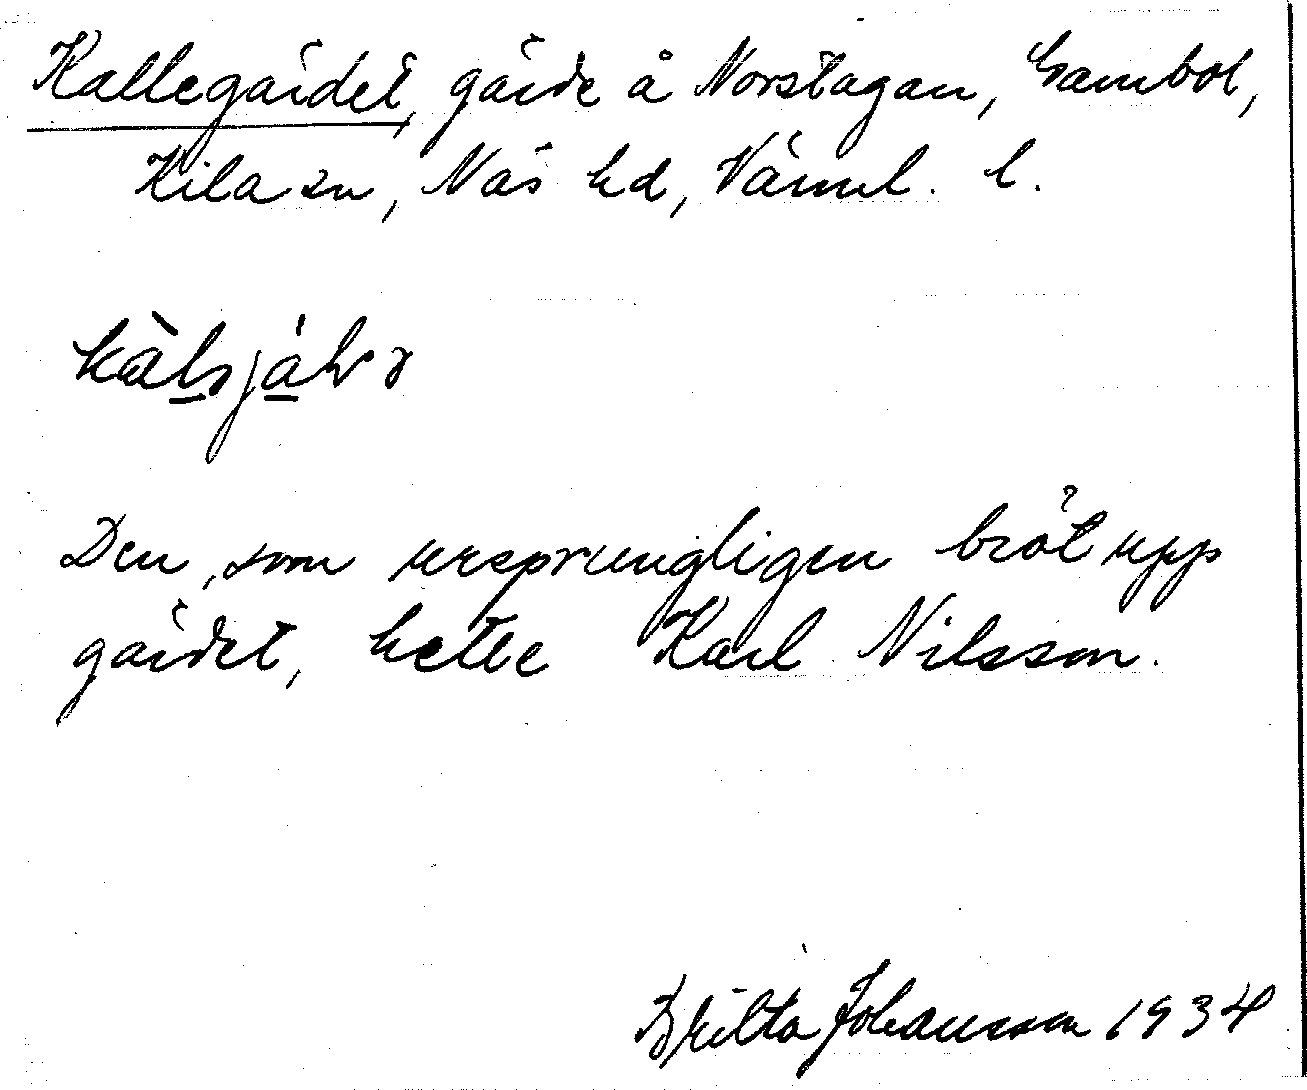 Kallegärdet, gärde å Norstagan, hambol,
Kila sn, Näs hd, Värml. l.
Den, som ursprungligen bröt upp
gärdet, hette Karl Nilsson.
Britta Johansson 1934